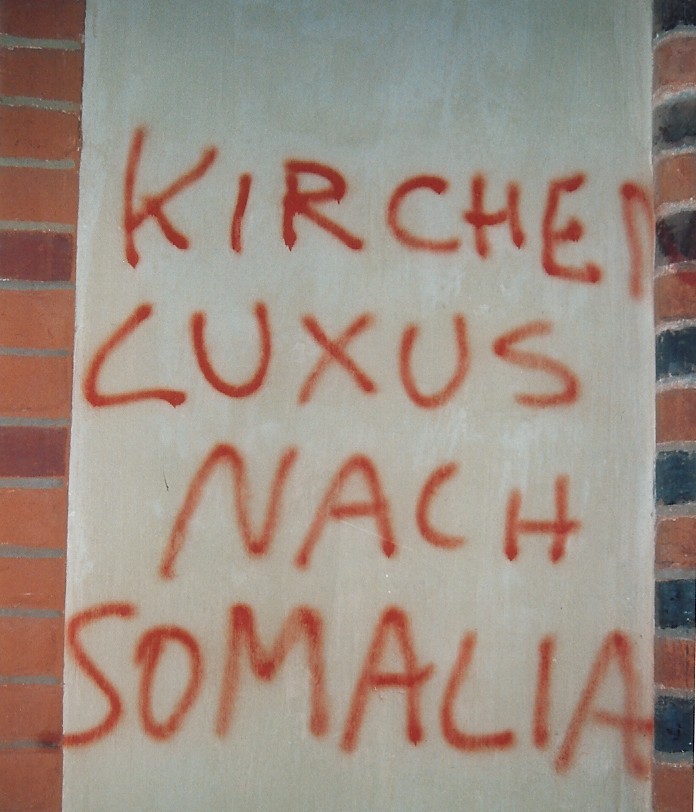 KIRCHEN
LUXUS
NACH
SOMALIA